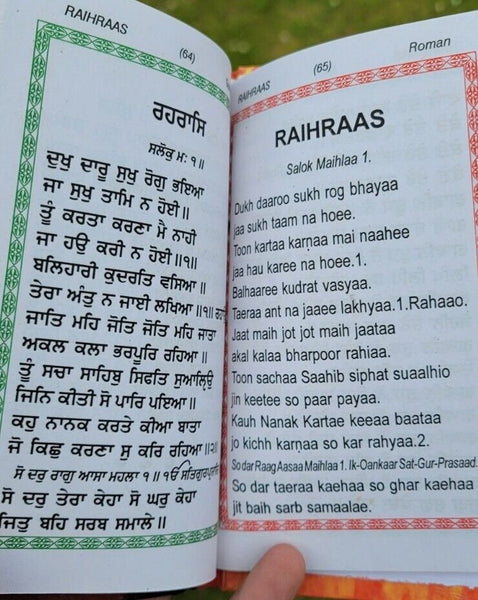 RAIHRAAS
(64)
ਰਹਰਾਸਿ
ਸਲੋਕੁ ਮਃ ੧॥
ਦੁਖੁ ਦਾਰੂ ਸੁਖੁ ਰੋਗੁ ਭਇਆ
ਜਾ ਸੁਖੁ ਤਾਮਿ ਨ ਹੋਈ॥
ਤੂੰ ਕਰਤਾ ਕਰਣਾ ਮੈ ਨਾਹੀ
ਜਾ ਹਉ ਕਰੀ ਨ ਹੋਈ॥੧॥
ਬਲਿਹਾਰੀ ਕੁਦਰਤਿ ਵਸਿਆ॥
ਤੇਰਾ ਅੰਤੁ ਨ ਜਾਈ ਲਖਿਆ॥੧॥
ਜਾਤਿ ਮਹਿ ਜੋਤਿ ਜੋਤਿ ਮਹਿ ਜਾਤਾ
ਅਕਲ ਕਲਾ ਭਰਪੂਰਿ ਰਹਿਆ॥
ਤੂੰ ਸਚਾ ਸਾਹਿਬੁ ਸਿਫਤਿ ਸੁਆਲ੍ਹਿਉ
ਜਿਨਿ ਕੀਤੀ ਸੋ ਪਾਰਿ ਪਇਆ॥
ਕਹੁ ਨਾਨਕ ਕਰਤੇ ਕੀਆ ਬਾਤਾ
ਜੋ ਕਿਛੁ ਕਰਣਾ ਸੁ ਕਰਿ ਰਹਿਆ॥੨॥
ਸੋ ਦਰੁ ਰਾਗੁ ਆਸਾ ਮਹਲਾ ੧॥ੴ ਸਤਿਗੁਰਪ੍ਰਸਾਦਿ
ਸੋ ਦਰੁ ਤੇਰਾ ਕੇਹਾ ਸੋ ਘਰੁ ਕੇਹਾ
ਜਿਤੁ ਬਹਿ ਸਰਬ ਸਮਾਲੇ॥
RAIHRAAS
(65)
Roman
RAIHRAAS
Salok Maihlaa 1.
Dukh daaroo sukh rog bhayaa
jaa sukh taam na hoee.
Toon kartaa karṇaa mai naahee
jaa hau karee na hoee.1.
Balhaaree kudrat vasyaa.
Taeraa ant na jaaee lakhyaa.1.Rahaao.
Jaat maih jot jot maih jaataa
akal kalaa bharpoor rahiaa.
Toon sachaa Saahib siphat suaalhio
jin keetee so paar payaa.
Kauh Nanak Kartae keeaa baataa
jo kichh karṇaa so kar rahyaa.2.
So dar Raag Aasaa Maihlaa 1. Ik-Oankaar Sat-Gur-Prasaad.
So dar taeraa kaehaa so ghar kaehaa
jit baih sarb samaalae.